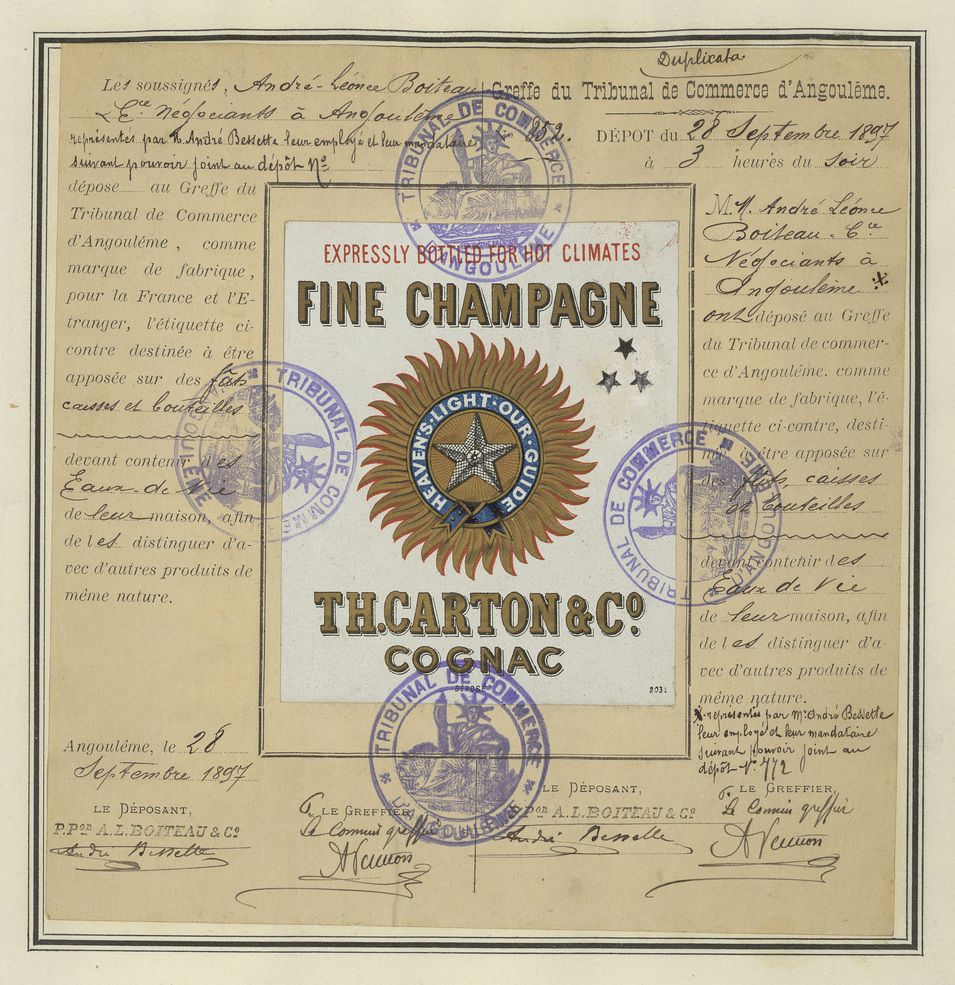 Duplicata
Les soussignés, André-Léonce Boiteau
& Cie Négociants à Angoulême
représentés par M. André Bessette leur employé et leur mandataire
suivant pouvoir joint au dépôt No
dépose au Greffe du
Tribunal de Commerce
d'Angoulême, comme
marque de fabrique,
pour la France et l'E-
tranger, l'étiquette ci-
contre destinée à être
apposée sur des fûts
caisses et bouteilles
devant contenir des
Eaux-de-Vie
de leur maison, afin
de les distinguer d'a-
vec d'autres produits de
même nature.
Angoulême, le 28
Septembre 1897
LE DÉPOSANT,
P.Pon A.L.BOITEAU & Co
André Bessette
LE GREFFIER,
Le Commis greffier
AVennon
852.
EXPRESSLY BOTTLED FOR HOT CLIMATES
FINE CHAMPAGNE
HEAVENS·LIGHT·OUR·GUIDE
TH.CARTON & Co
COGNAC
DÉPOSÉ
2031
Greffe du Tribunal de Commerce d'Angoulême.
DÉPOT du 28 Septembre 1897
à 3 heures du soir
MM. André Léonce
Boiteau & Cie
Négociants à
Angoulême
ont déposé au Greffe
du Tribunal de commer-
ce d'Angoulême. comme
marque de fabrique, l'é-
tiquette ci-contre, desti-
née à être apposée sur
des fûts, caisses
et bouteilles
devant contenir des
Eaux de Vie
de leur maison, afin
de les distinguer d'a-
vec d'autres produits de
même nature.
représentés par Mr André Bessette
leur employé et leur mandataire
suivant pouvoir joint au
dépôt No 772
LE DÉPOSANT,
P.Pon A.L.BOITEAU & Co
André Bessette
LE GREFFIER,
Le Commis greffier
AVennon
TRIBUNAL DE COMMERCE
D'ANGOULÊME
TRIBUNAL DE COMMERCE
D'ANGOULÊME
TRIBUNAL DE COMMERCE
D'ANGOULÊME
TRIBUNAL DE COMMERCE
D'ANGOULÊME